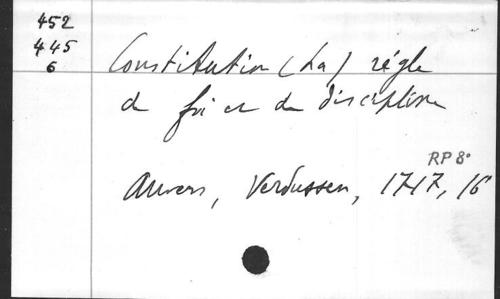 452
445
6
Constitution (La) régle
de foi et de discipline
RP 8°
Anvers, Verdussen, 1717, 16°